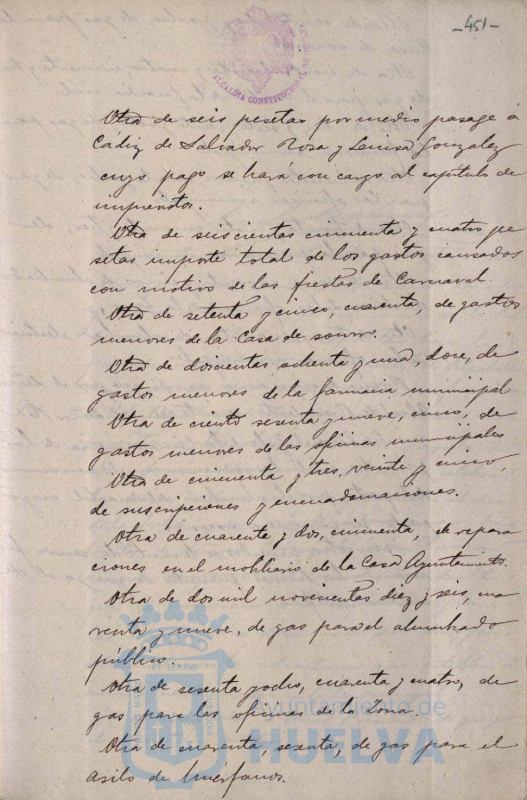 -451-
ALCALDIA CONSTITUCIONAL DE
Otra de seis pesetas por medio pasage á
Cádiz de Salvador Rosa y Luisa Gonzalez
cuyo pago se hará con cargo al capitulo de
imprevistos.
Otra de seiscientas cincuenta y cuatro pe
setas importe total de los gastos causados
con motivo de las fiestas de Carnaval.
Otra de setenta y cinco, cuarenta, de gastos
menores de la Casa de socorro.
Otra de doscientas ochenta y una, doce, de
gastos menores de la farmacia municipal
Otra de ciento sesenta y nueve, cinco, de
gastos menores de las oficinas municipales
Otra de cincuenta y tres, veinte y cinco,
de suscripciones y encuadernaciones.
Otra de cuarenta y dos, cincuenta, de repara
ciones en el mobiliario de la Casa Ayuntamiento.
Otra de dos mil novecientas diez y seis, no
venta y nueve, de gas para el alumbrado
público.
Otra de sesenta y ocho, cuarenta y cuatro, de
gas para las oficinas de la Zona.
Ayuntamiento de
HUELVA
Otra de cuarenta, sesenta, de gas para el
asilo de huérfanos.